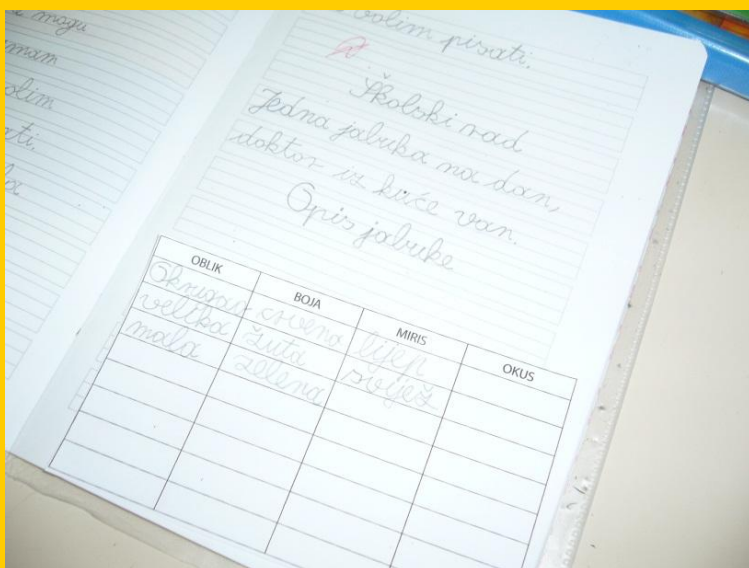 mogu
mam
olim
ati.
la
volim pisati.
Školski rad
Jedna jabuka na dan,
doktor iz kuće van.
Opis jabuke
OBLIK BOJA MIRIS OKUS
Okrugao crvena lijep
velika žuta svjež
mala zelena